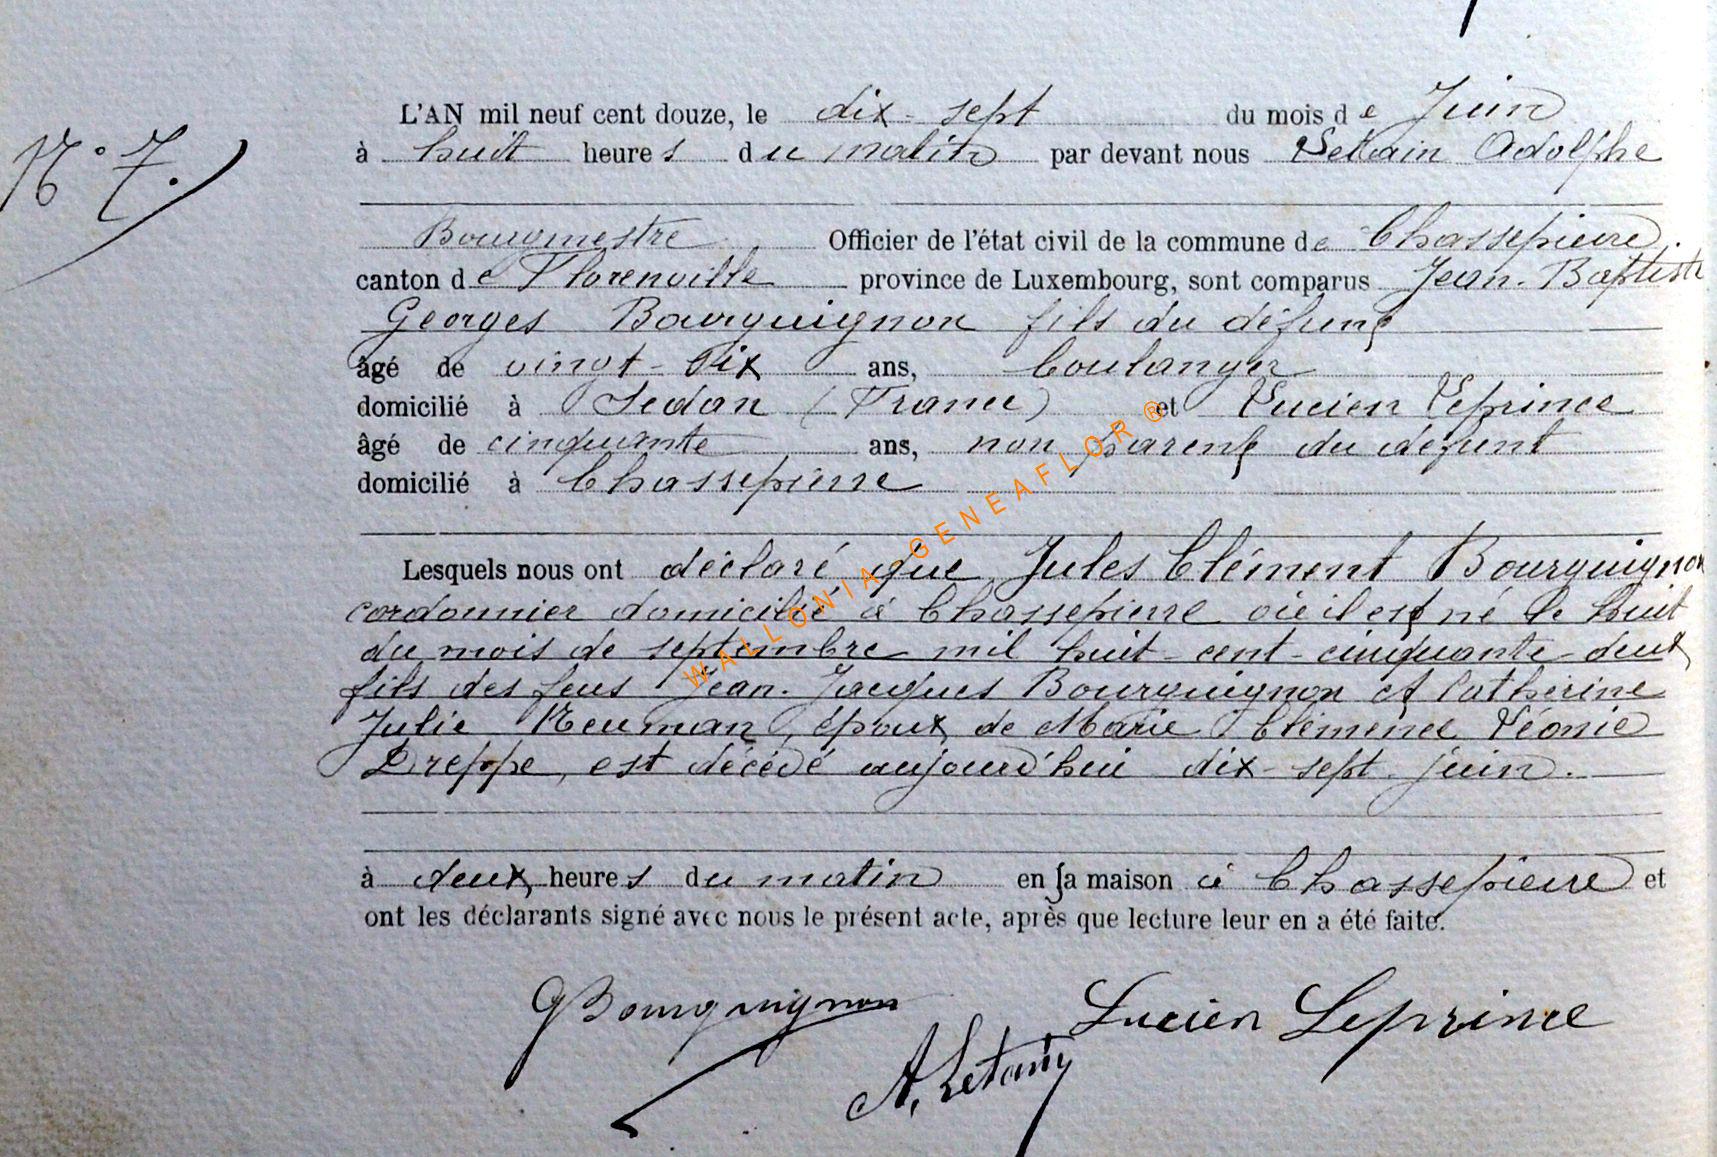 N° 7.
L'AN mil neuf cent douze, le dix-sept du mois de Juin
à huit heures du matin par devant nous Letain Adolphe
Bourgmestre Officier de l'état civil de la commune de Chassepierre,
canton de Florenville province de Luxembourg, sont comparus Jean-Baptiste
Georges Bourguignon fils du défunt
âgé de vingt-six ans, boulanger
domicilié à Sedan (France) et Lucien Leprince
âgé de cinquante ans, non parent du défunt
domicilié à Chassepierre
Lesquels nous ont déclaré que Jules Clément Bourguignon
cordonnier domicilié à Chassepierre où il est né le huit
du mois de septembre mil huit-cent-cinquante-deux,
fils des feus Jean-Jacques Bourguignon et Catherine
Julie Neuman, époux de Marie Clémence Léonie
Dreppe, est décédé aujourd'hui dix-sept juin.
à deux heures du matin en sa maison à Chassepierre et
ont les déclarants signé avec nous le présent acte, après que lecture leur en a été faite.
GBourguignon
Lucien Leprince
A. Letain
WALLONIA GENEAFLOR®